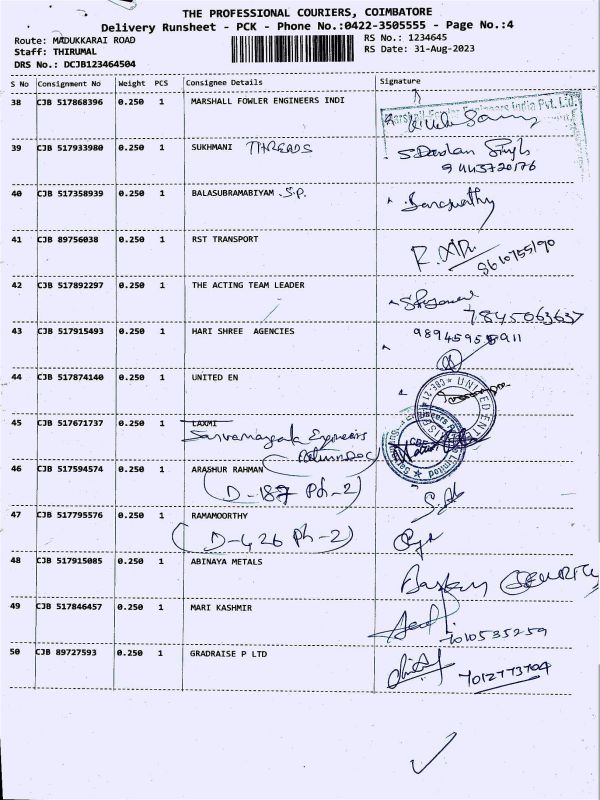 THE PROFESSIONAL COURIERS, COIMBATORE
Delivery Runsheet - PCK - Phone No.:0422-3505555 - Page No.:4
Route: MADUKKARAI ROAD
RS No.: 1234645
Staff: THIRUMAL
RS Date: 31-Aug-2023
DRS No.: DCJB123464504
S No Consignment No Weight PCS Consignee Details Signature
38 CJB 517868396 0.250 1 MARSHALL FOWLER ENGINEERS INDI
Marshall-Fowler Engineers India Pvt. Ltd.
39 CJB 517933980 0.250 1 SUKHMANI THREADS
S Darshan Singh
9443720176
40 CJB 517358939 0.250 1 BALASUBRAMABIYAM .S.P.
41 CJB 89756038 0.250 1 RST TRANSPORT
8610755190
42 CJB 517892297 0.250 1 THE ACTING TEAM LEADER
7845063637
43 CJB 517915493 0.250 1 HARI SHREE AGENCIES
44 CJB 517874140 0.250 1 UNITED EN
45 CJB 517671737 0.250 1 LAXMI
Sarvamangala Engineers
46 CJB 517594574 0.250 1 ARASHUR RAHMAN
(D-187 Ph-2)
47 CJB 517795576 0.250 1 RAMAMOORTHY
(D-426 Ph-2)
48 CJB 517915085 0.250 1 ABINAYA METALS
SECURITY
49 CJB 517846457 0.250 1 MARI KASHMIR
7010535259
50 CJB 89727593 0.250 1 GRADRAISE P LTD
7012773704